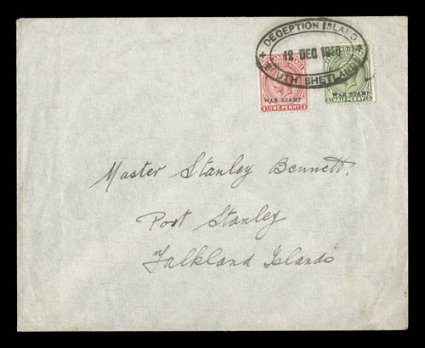 DECEPTION ISLAND
12 DEC 19
SOUTH SHETLANDS
WAR STAMP
ONE PENNY
WAR STAMP
HALF PENNY
Master Stanley Bennett.
Port Stanley
Falkland Islands